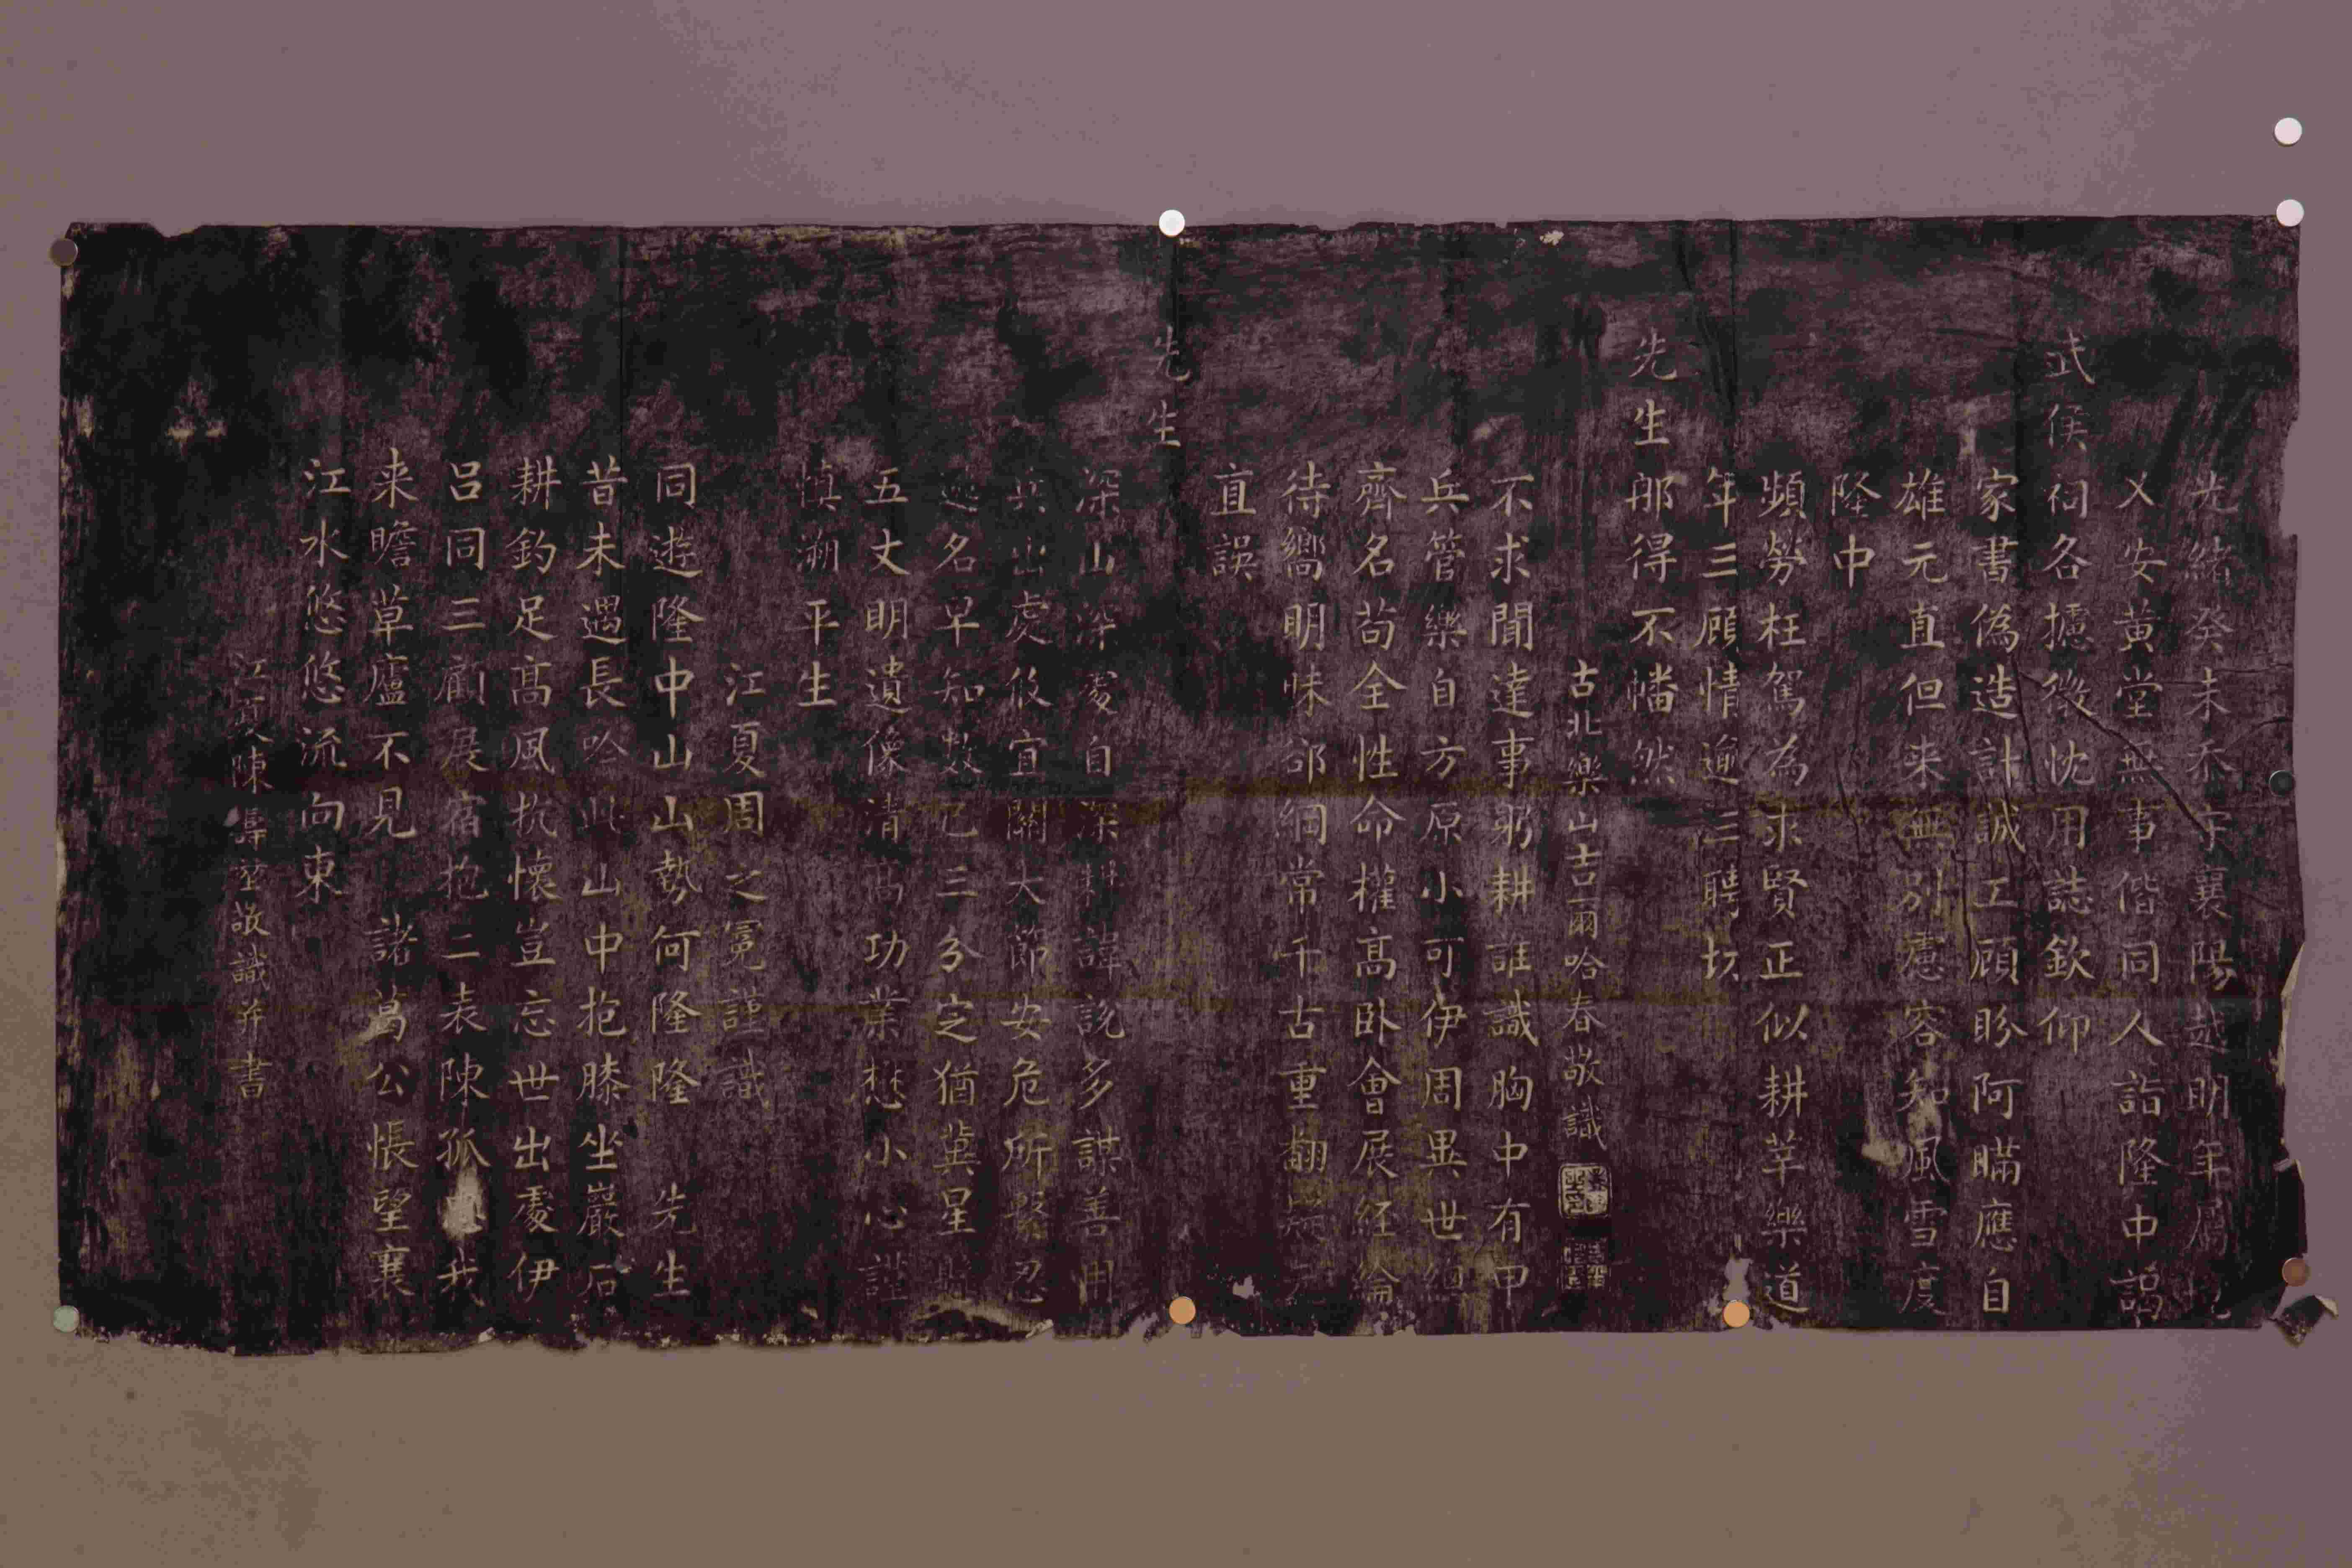 光緒癸未忝守襄陽越明年屬境
乂安黃堂無事偕同人詣隆中謁
武侯祠各攄微忱用誌欽仰
家書偽造計誠工顧盼阿瞞應自
雄元直但来無別慮容知風雪度
隆中
頻勞枉駕為求賢正似耕莘樂道
年三顧情逾三聘切
先生那得不幡然
古北樂山吉爾哈春敬識
不求聞達事躬耕誰識胸中有甲
兵管樂自方原小可伊周異世
齊名苟全性命權高臥會展経綸
待嚮明昧卻綱常千古重翻
直誤
先生
深山深處自深耕諱說多謀善用
兵出處攸宜關大節安危所繫忍
逃名早知數已三分定猶冀星
五丈明遺像清高功業懋小心謹
慎溯平生
江夏周之冕謹識
同遊隆中山山勢何隆隆 先生
昔未遇長吟此山中抱膝坐巖石
耕釣足高風抗懷豈忘世出處伊
呂同三顧展宿抱二表陳孤忠我
来瞻草廬不見 諸葛公悵望襄
江水悠悠流向東
江夏陳壽敬識并書